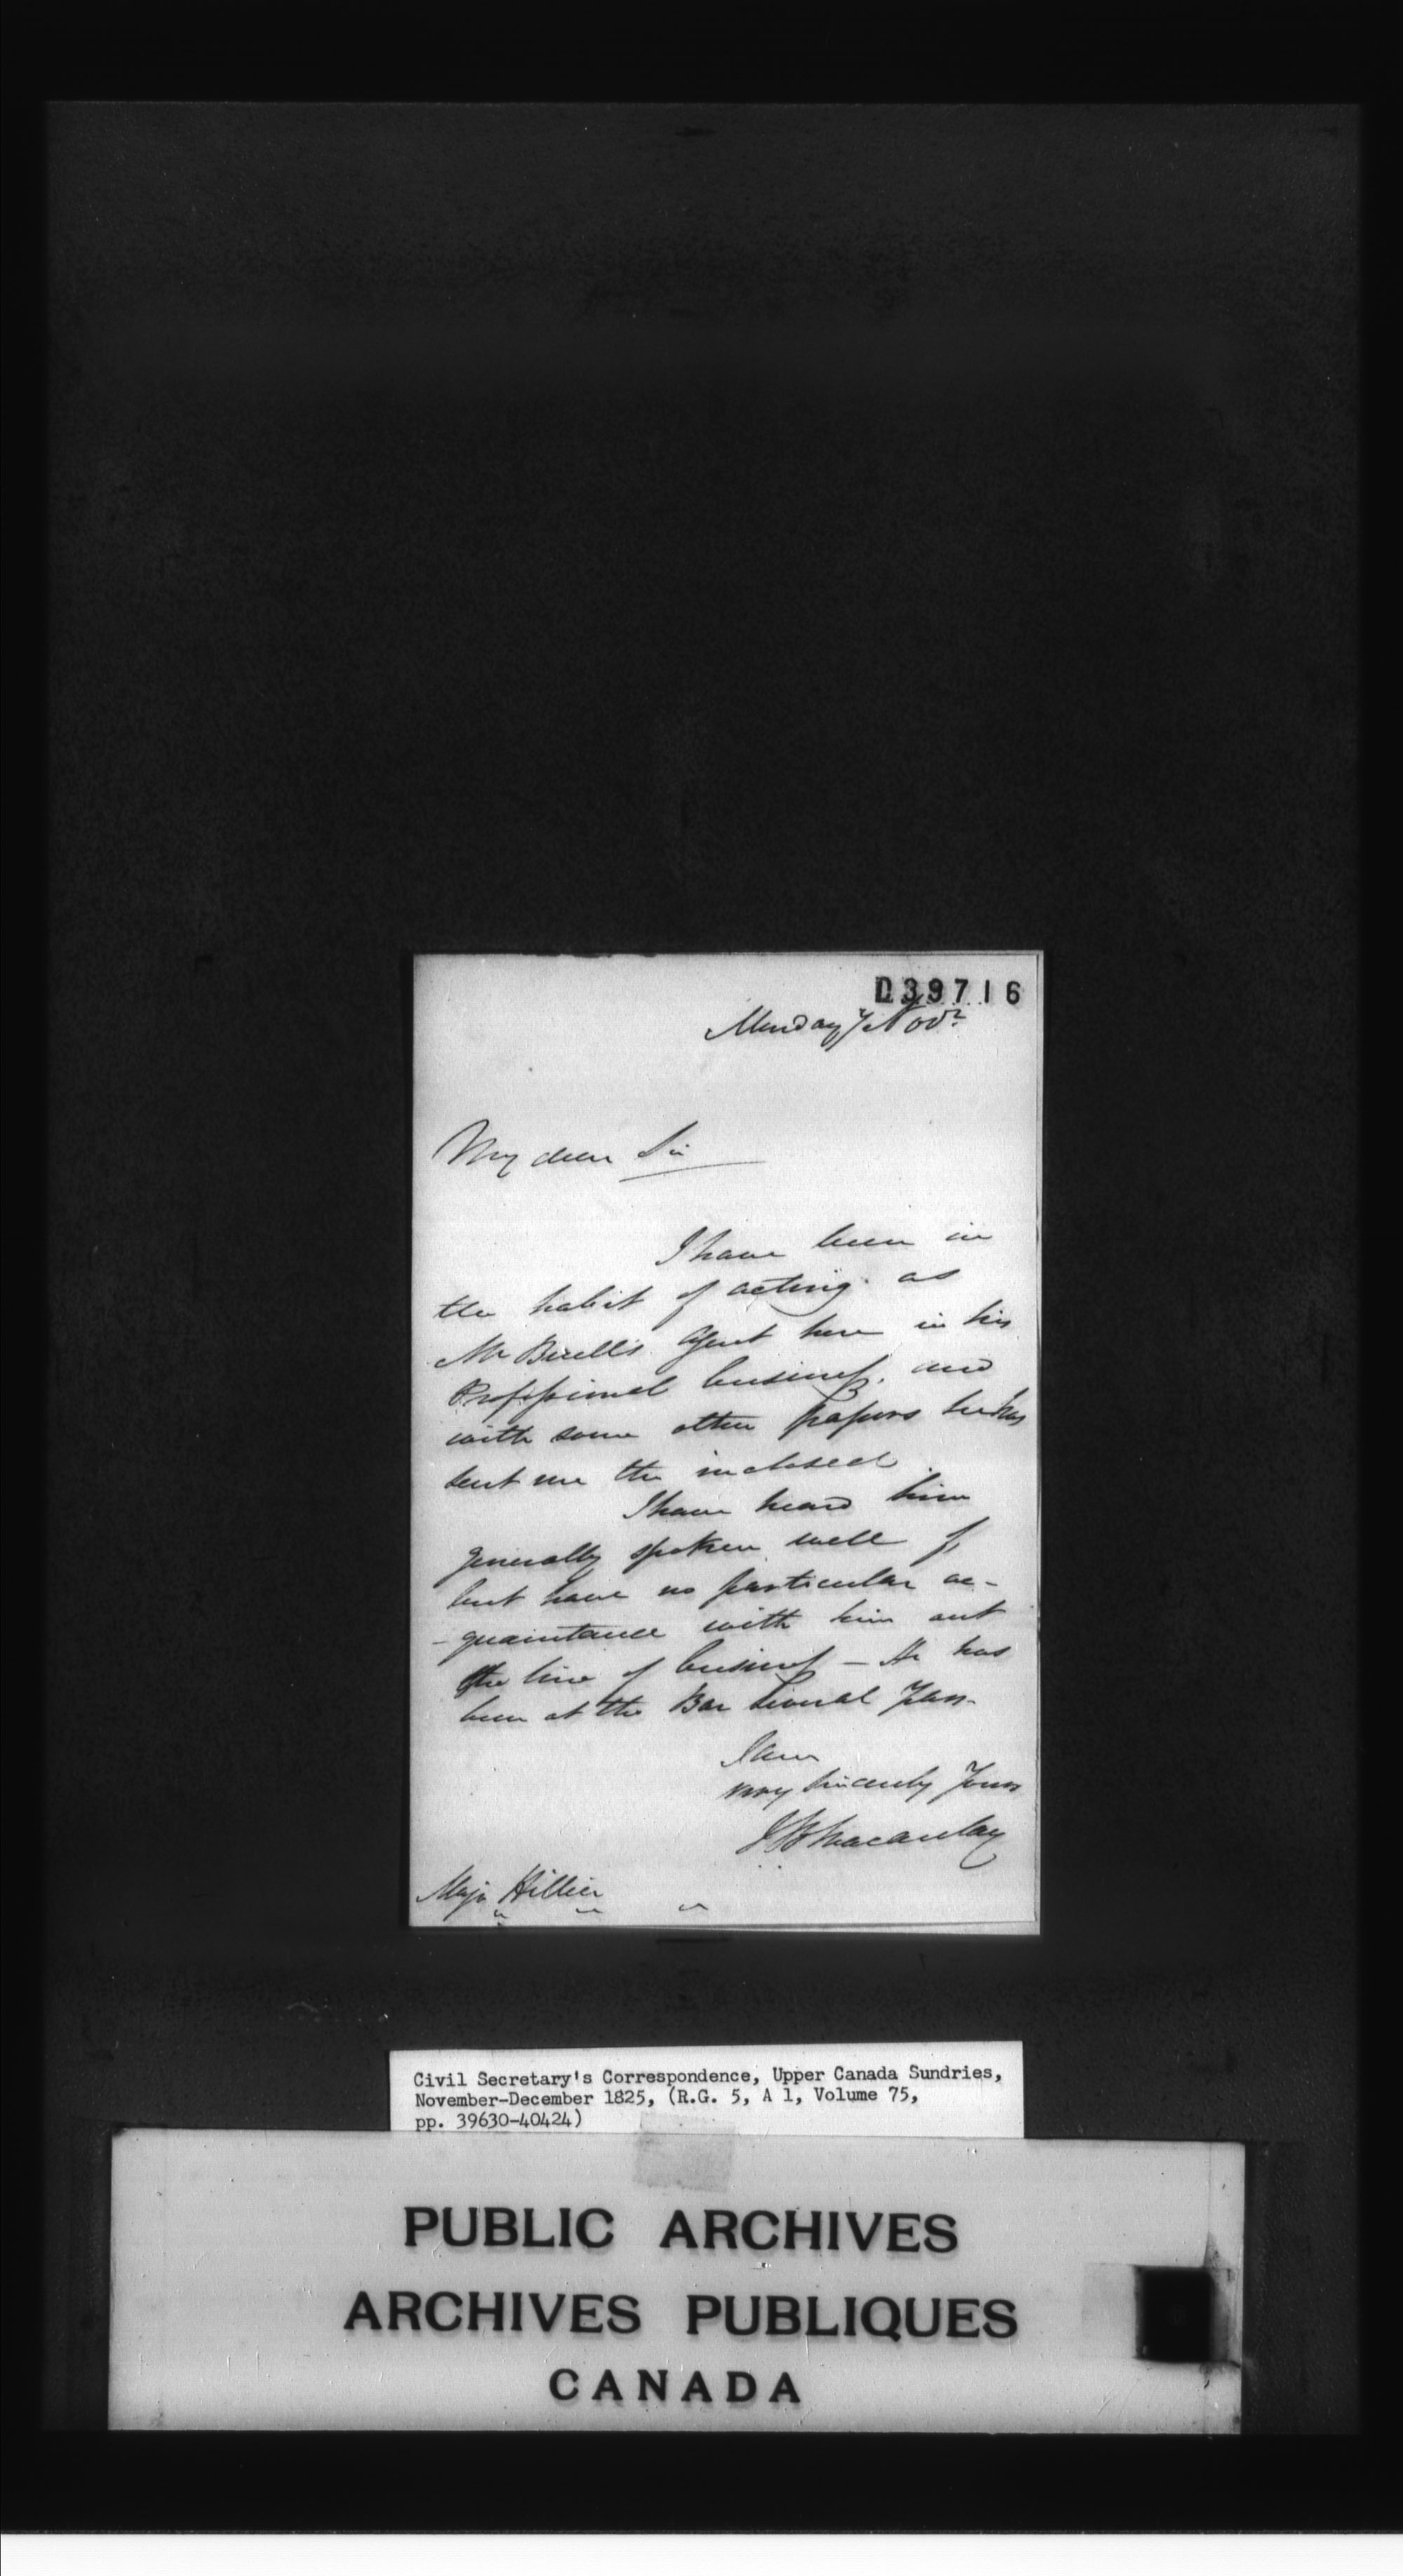 D39716
Monday 7 Novr
My dear Sir
I have been in
the habit of acting as
Mr Birells Agent here in his
Professional business, and
with some other papers he has
sent me the inclosed
I have heard him
generally spoken well of,
but have no particular ac-
-quaintance with him out
the line of business - He has
been at the Bar several Years.
I am
very sincerely Yours
J B Macaulay
Major Hillier
Civil Secretary's Correspondence, Upper Canada Sundries,
November-December 1825, (R.G. 5, A 1, Volume 75,
pp. 39630-40424)
PUBLIC ARCHIVES
ARCHIVES PUBLIQUES
CANADA